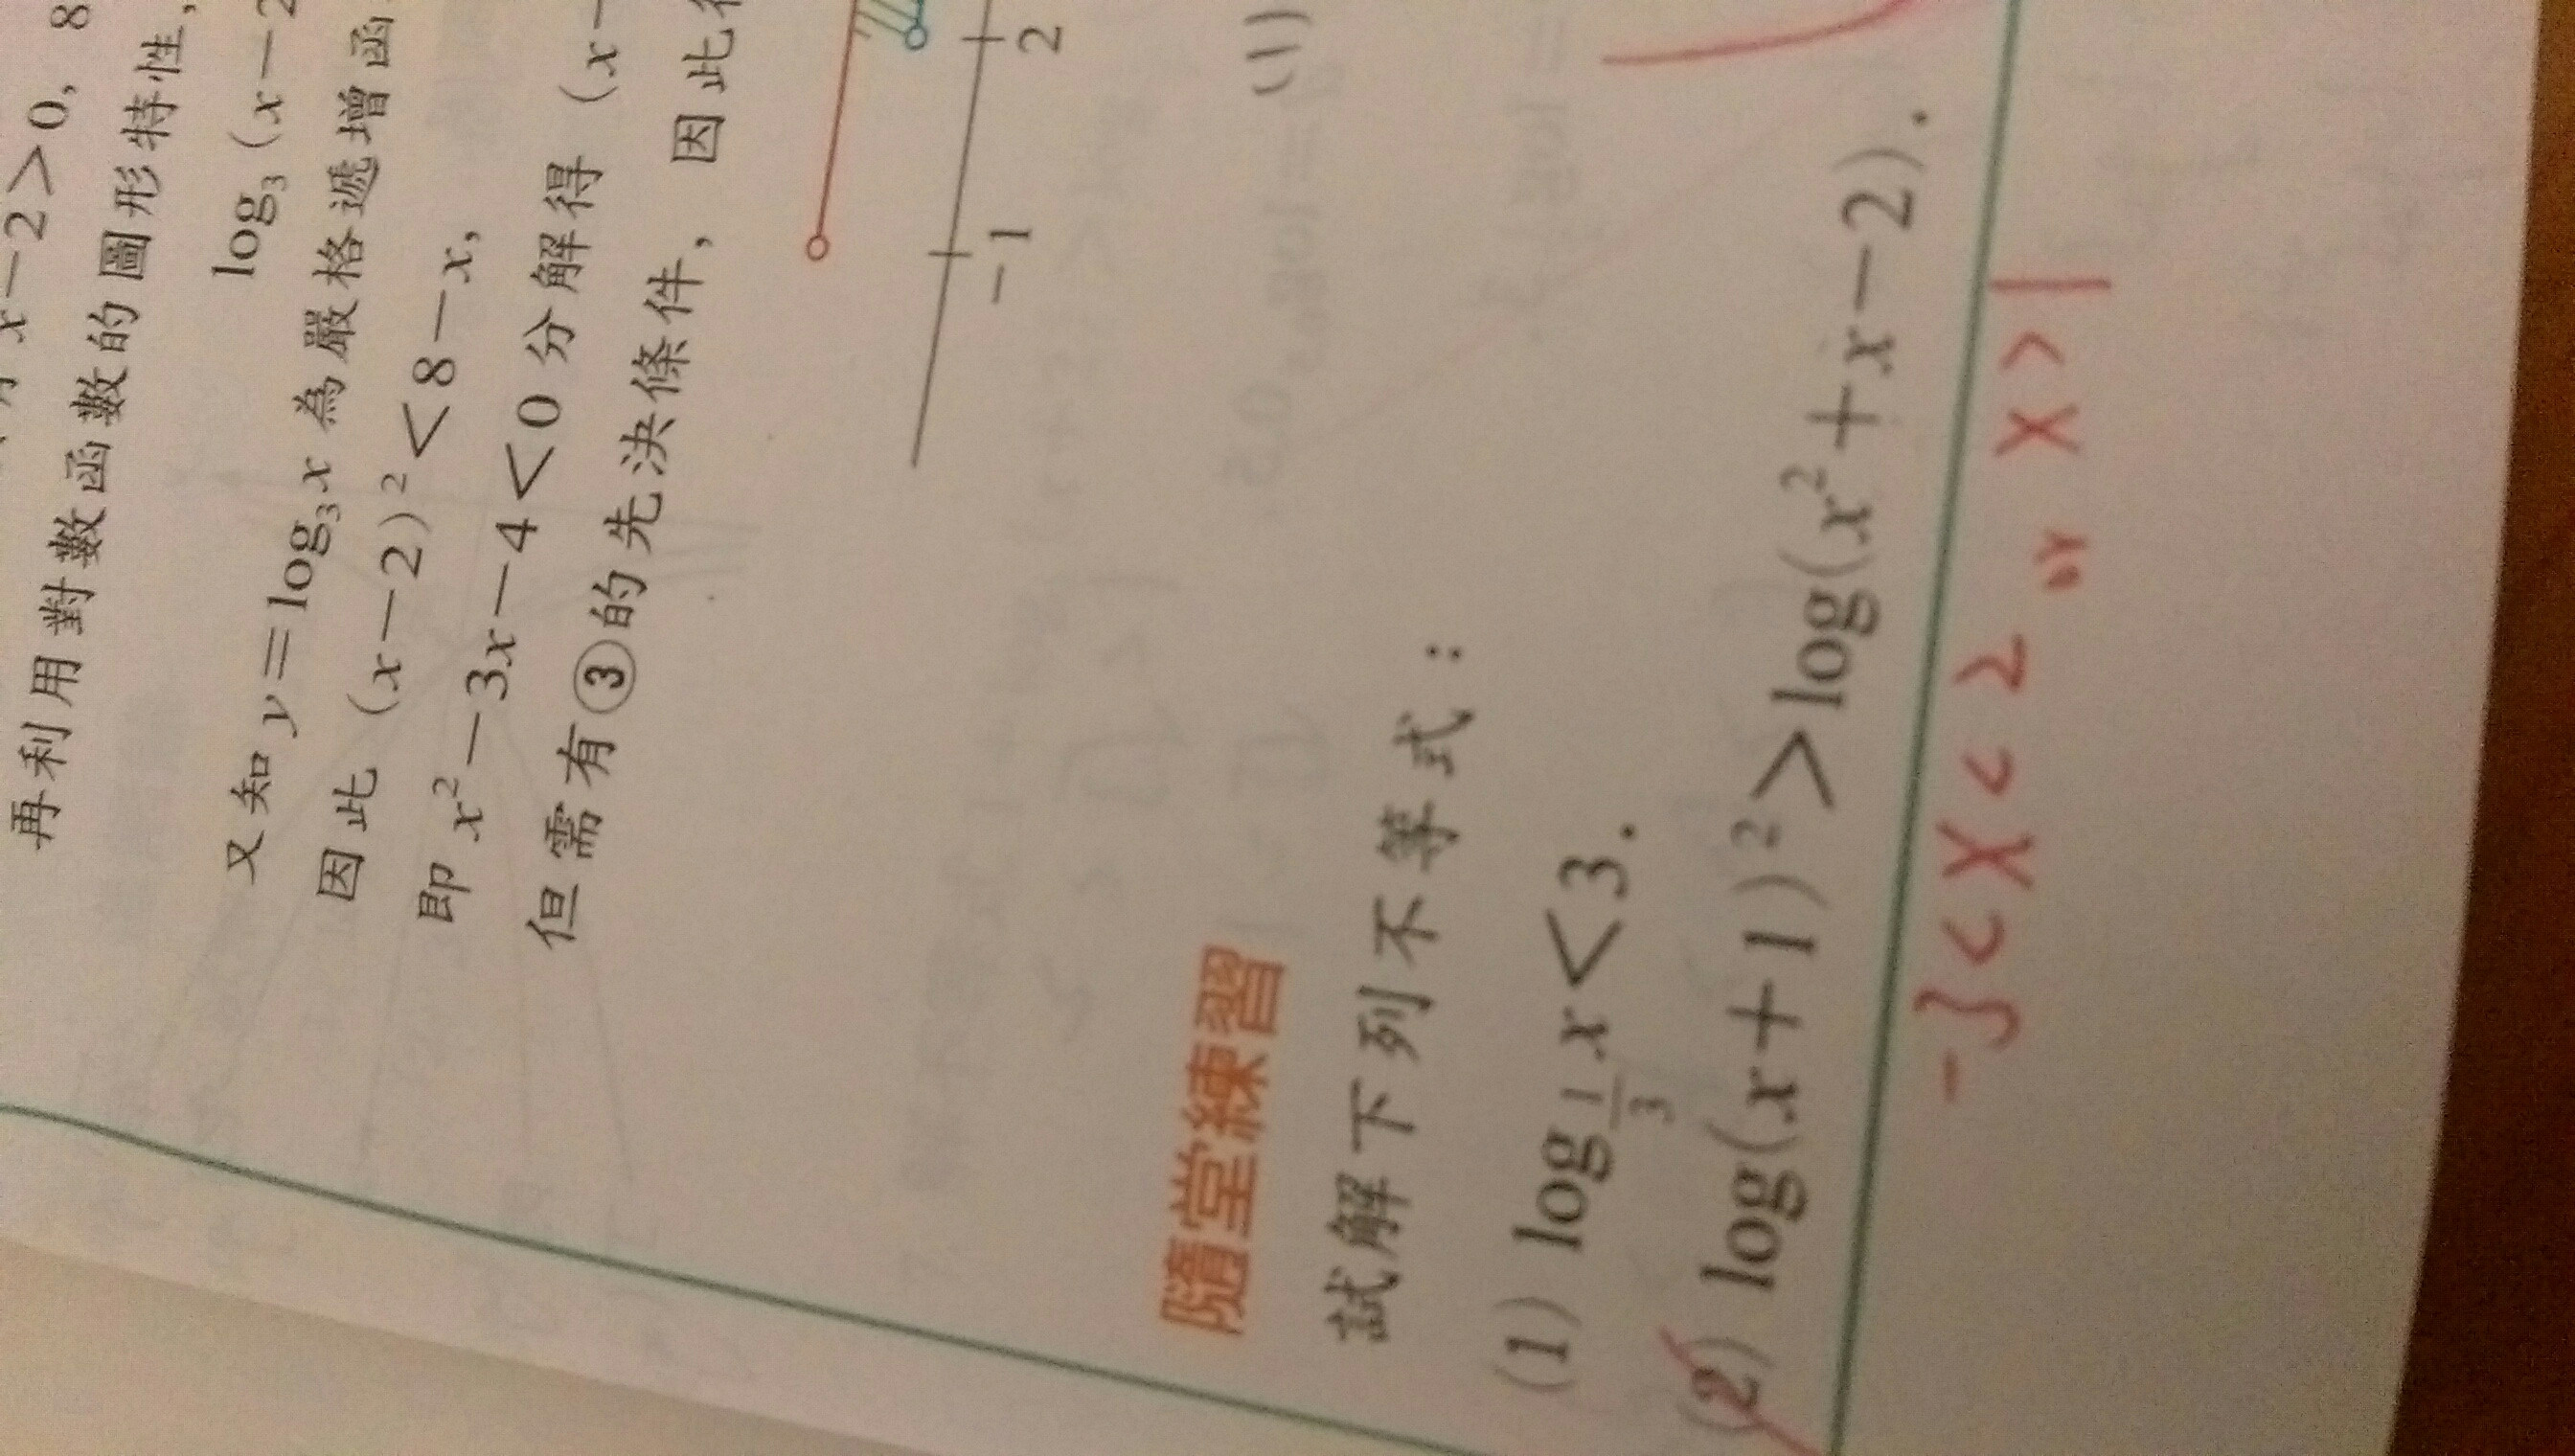 x－2＞0, 8
再利用對數函數的圖形特性,
log₃(x－2
又知 y＝log₃x 為嚴格遞增函
因此 (x－2)²＜8－x,
即 x²－3x－4＜0 分解得 (x－
但需有③的先決條件, 因此
－1 2
隨堂練習
(1)
試解下列不等式：
(1) log_{1/3} x＜3.
(2) log(x＋1)²＞log(x²＋x－2).
-3＜x＜2 or x＞1